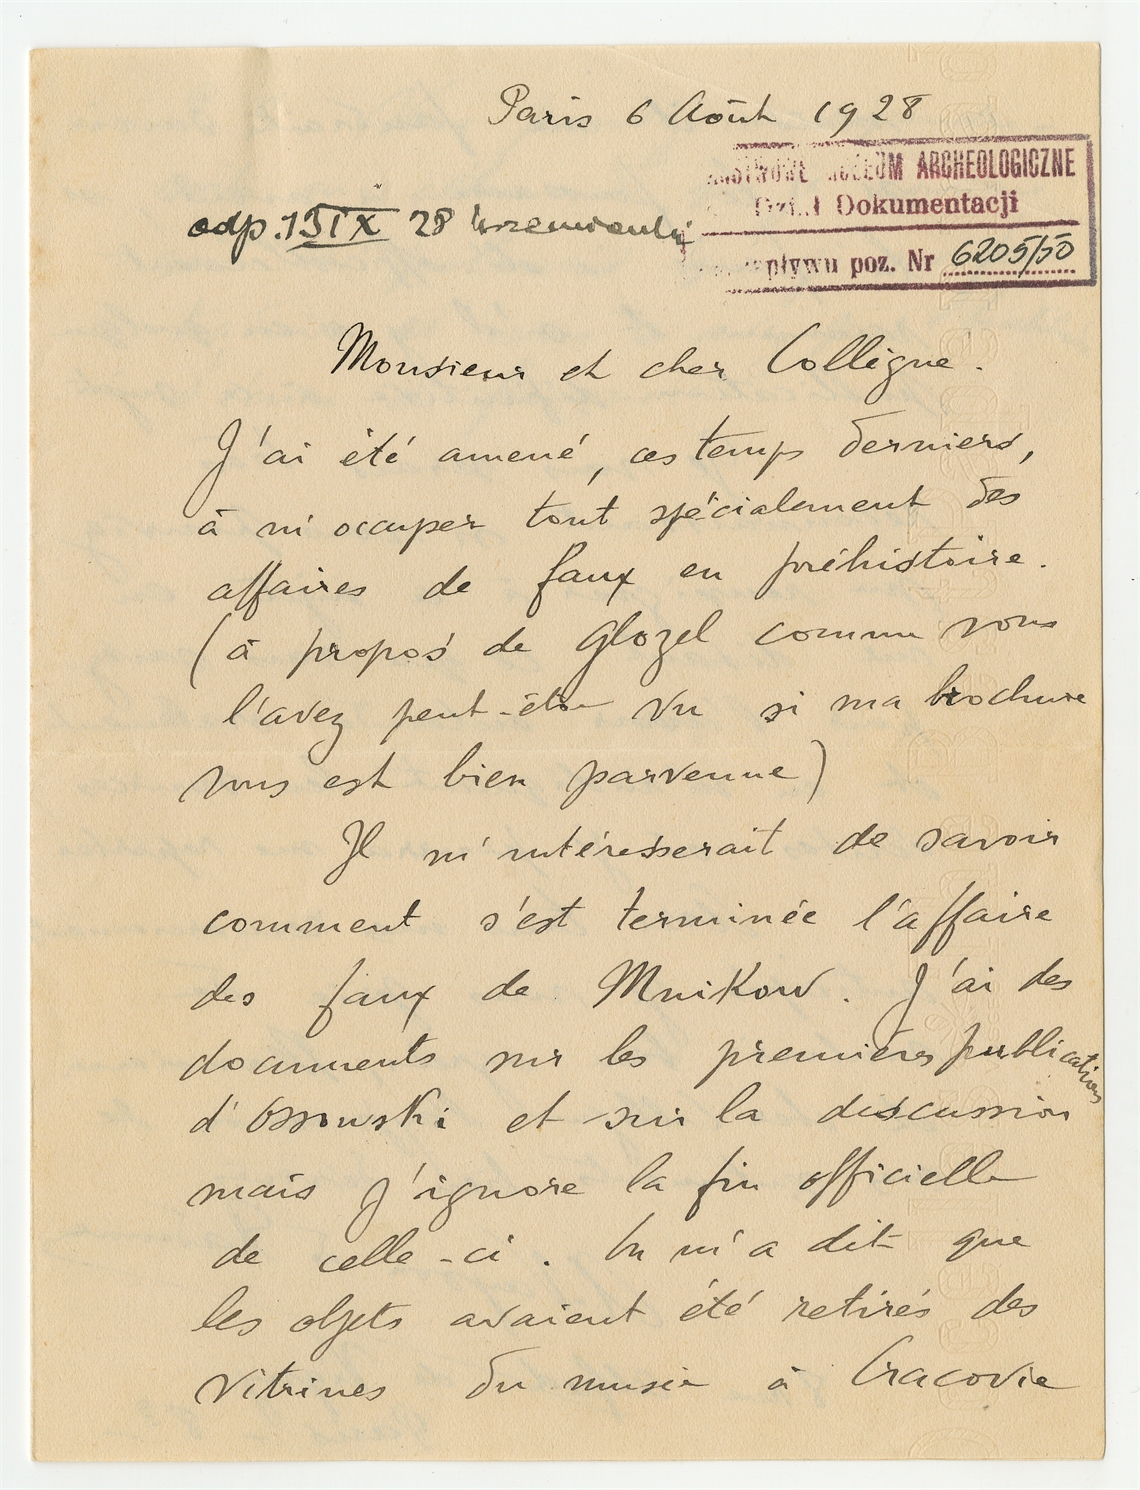 Paris 6 Août 1928
MUZEUM ARCHEOLOGICZNE
Dział Dokumentacji
wpływu poz. Nr 6205/50
odp. 15 IX 28
Monsieur et cher Collègue.
J'ai été amené, ces temps derniers,
à m'occuper tout spécialement des
affaires de faux en préhistoire.
(à propos de Glozel comme vous
l'avez peut-être vu si ma brochure
vous est bien parvenue)
Il m'intéresserait de savoir
comment s'est terminée l'affaire
des faux de Mnikow. J'ai des
documents sur les premières publications
d'Ossowski et sur la discussion
mais j'ignore la fin officielle
de celle-ci. On m'a dit que
les objets avaient été retirés des
vitrines du musée à Cracovie